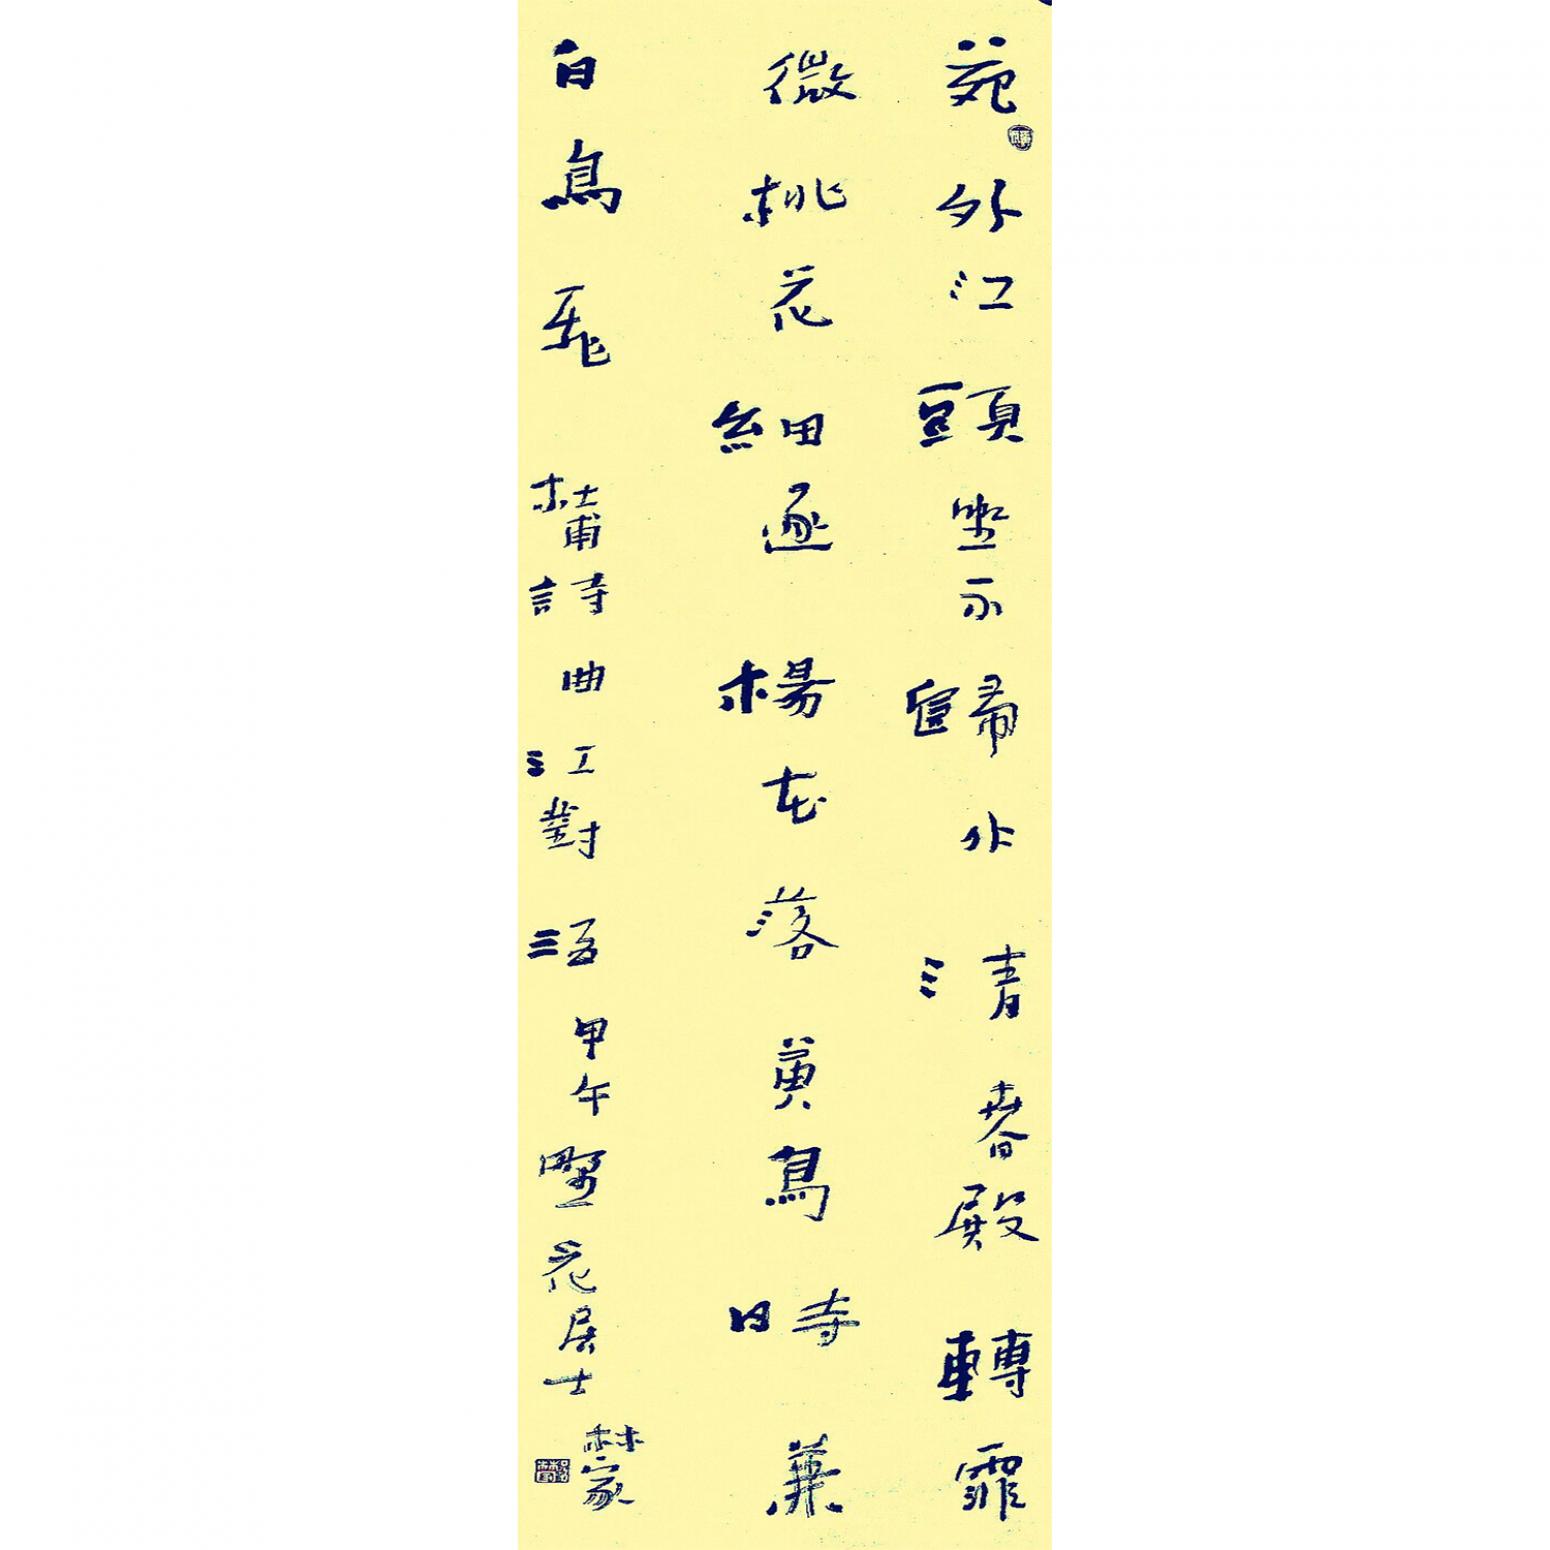 苑外江頭坐不歸水清春殿轉霏
微桃花細逐楊花落黃鳥時兼
白鳥飛 杜甫詩曲江對酒甲午花居士林家